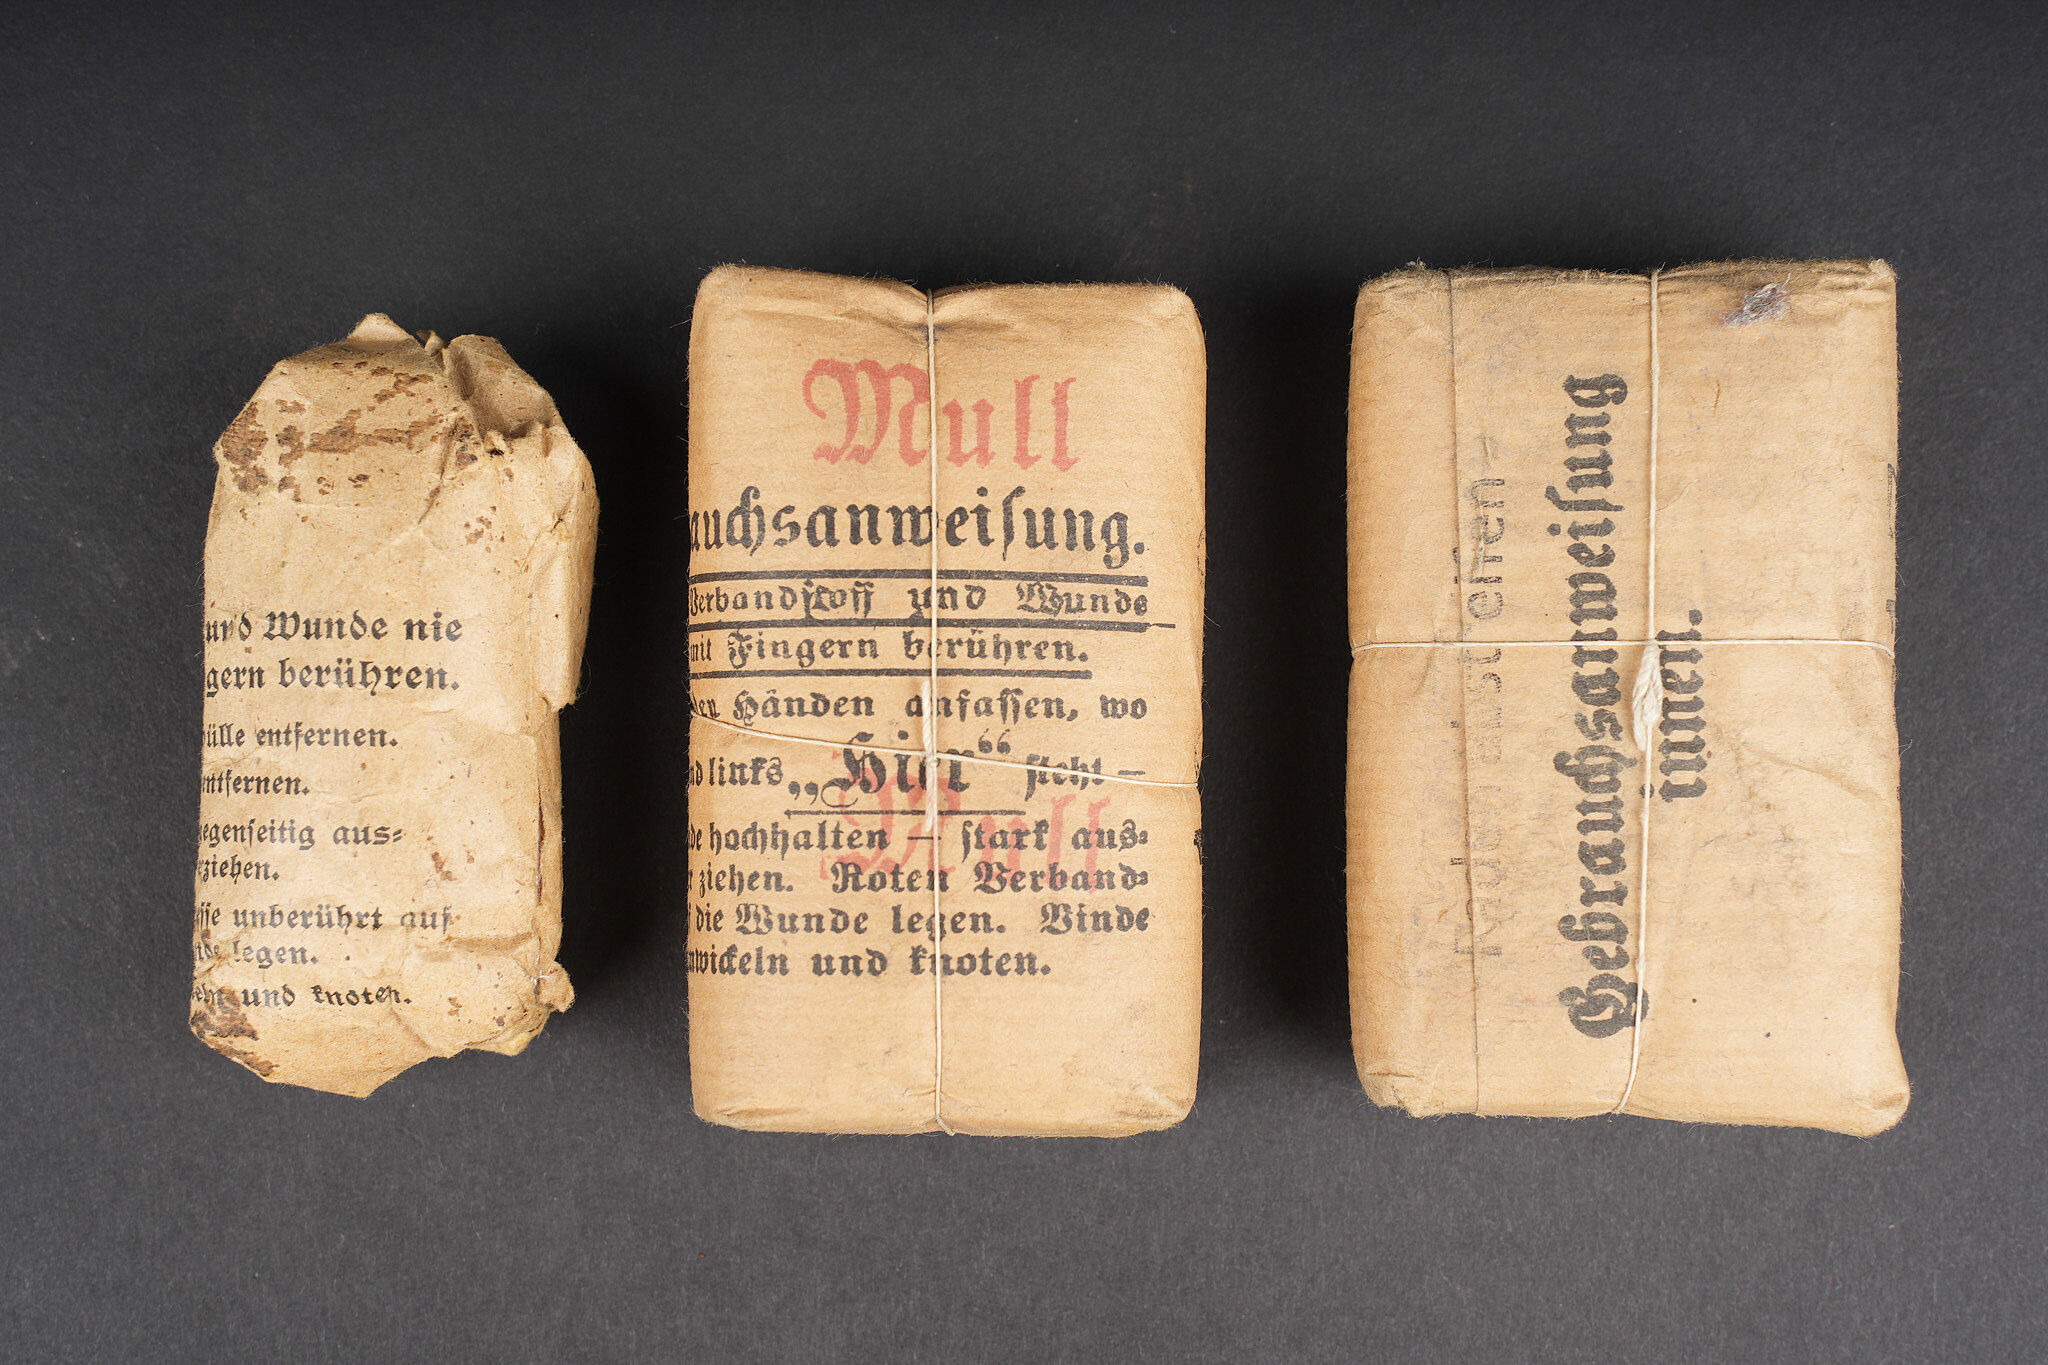 und Wunde nie
gern berühren.
ülle entfernen.
entfernen.
gegenseitig aus=
rziehen.
sse unberührt auf
nde legen.
eln und knoten.
Mull
auchsanweisung.
Verbandstoff und Wunde
mit Fingern berühren.
den Händen anfassen, wo
nd links „Hier“ steht —
de hochhalten — stark aus=
r ziehen. Roten Verband=
f die Wunde legen. Binde
mwickeln und knoten.
Mull
Faden abstreifen —
Gebrauchsanweisung
innen.